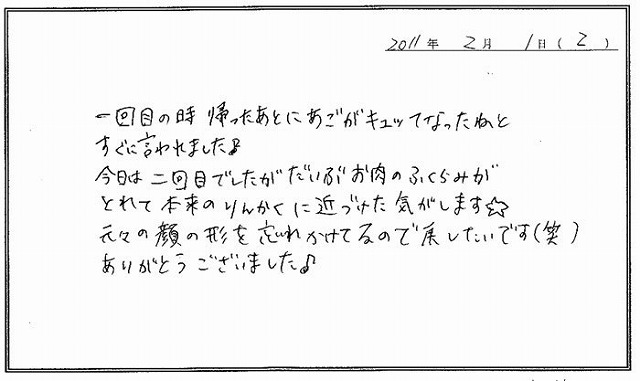 2011年 2月 1日(2)
一回目の時 帰ったあとにあごがキュッてなったねと
すぐに言われました♪
今日は二回目でしたがだいぶお肉のふくらみが
とれて本来のりんかくに近づけた気がします☆
元々の顔の形を忘れかけてるので戻したいです(笑)
ありがとうございました♪